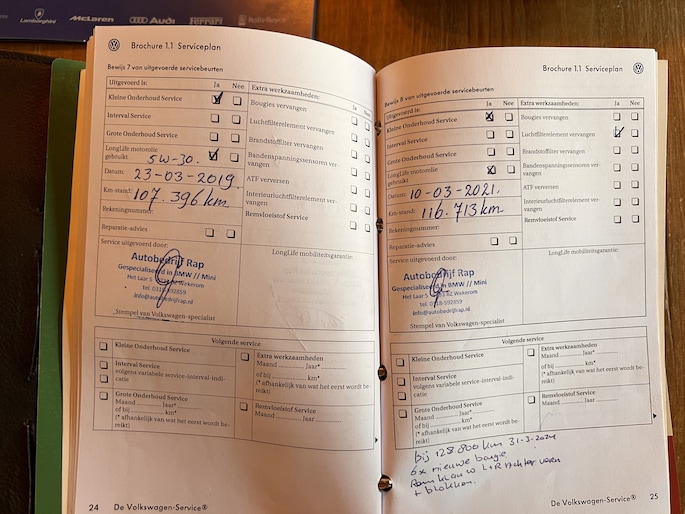 Lamborghini McLaren Audi Ferrari Rolls-Royce
Brochure 1.1 Serviceplan
Bewijs 7 van uitgevoerde servicebeurten
Uitgevoerd is: Ja Nee Extra werkzaamheden: Ja Nee
Kleine Onderhoud Service
Interval Service
Grote Onderhoud Service
LongLife motorolie
gebruikt 5W-30.
Datum: 23-03-2019.
Km-stand: 107.396 km
Rekeningnummer:
Reparatie-advies
Bougies vervangen
Luchtfilterelement vervangen
Brandstoffilter vervangen
Bandenspanningssensoren ver-
vangen
ATF verversen
Interieurluchtfilterelement ver-
vangen
Remvloeistof Service
Service uitgevoerd door:
LongLife mobiliteitsgarantie:
Autobedrijf Rap
Gespecialiseerd in BMW // Mini
Het Laar 5 Wekerom
tel. 0318-592859
info@autobedrijfrap.nl
Stempel van Volkswagen-specialist
Volgende service
Kleine Onderhoud Service
Interval Service
volgens variabele service-interval-indi-
catie
Grote Onderhoud Service
Maand ........ Jaar*
of bij ............ km*
(* afhankelijk van wat het eerst wordt be-
reikt)
Extra werkzaamheden
Maand ........ Jaar*
of bij ............ km*
(* afhankelijk van wat het eerst wordt be-
reikt)
Remvloeistof Service
Maand ........ Jaar
24 De Volkswagen-Service®
Brochure 1.1 Serviceplan
Bewijs 8 van uitgevoerde servicebeurten
Uitgevoerd is: Ja Nee Extra werkzaamheden: Ja Nee
Kleine Onderhoud Service
Interval Service
Grote Onderhoud Service
LongLife motorolie
gebruikt
Datum: 10-03-2021.
Km-stand: 116.713 km
Rekeningnummer:
Reparatie-advies
Bougies vervangen
Luchtfilterelement vervangen
Brandstoffilter vervangen
Bandenspanningssensoren ver-
vangen
ATF verversen
Interieurluchtfilterelement ver-
vangen
Remvloeistof Service
Service uitgevoerd door:
LongLife mobiliteitsgarantie:
Autobedrijf Rap
Gespecialiseerd in BMW // Mini
Het Laar 5 Wekerom
tel. 0318-592859
info@autobedrijfrap.nl
Stempel van Volkswagen-specialist
Volgende service
Kleine Onderhoud Service
Interval Service
volgens variabele service-interval-indi-
catie
Grote Onderhoud Service
Maand ........ Jaar*
of bij ............ km*
(* afhankelijk van wat het eerst wordt be-
reikt)
Extra werkzaamheden
Maand ........ Jaar*
of bij ............ km*
(* afhankelijk van wat het eerst wordt be-
reikt)
Remvloeistof Service
Maand ........ Jaar
bij 128 800 km 31-3-2024
6x nieuwe bougie
L+R Achter veren
+ blokken.
De Volkswagen-Service® 25